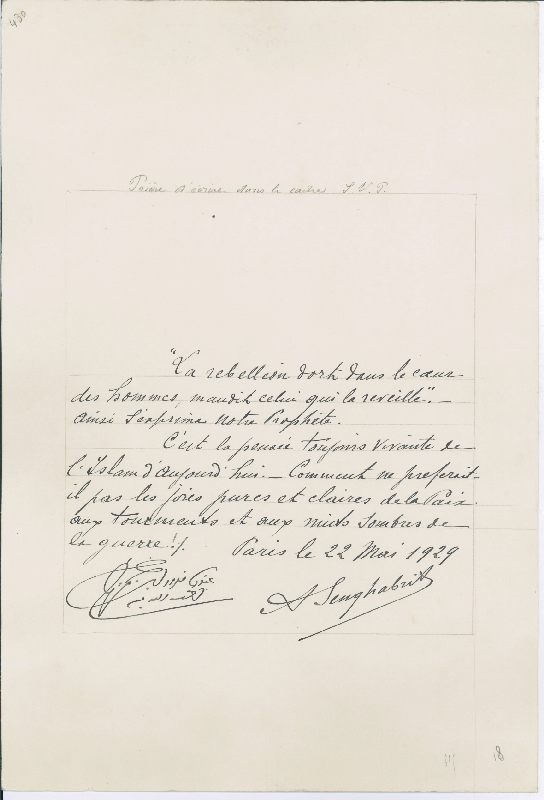 430
Prière d'écrire dans le cadre S.V.P.
"La rebellion dort dans le cœur
des hommes, maudit celui qui la reveille". —
ainsi s'exprima notre Prophète.
C'est la pensée toujours vivante de
l'Islam d'aujourd'hui. — Comment ne preferait-
il pas les joies pures et claires de la Paix
aux tourments et aux nuits sombres de
la guerre!/.
Paris le 22 Mai 1929
Benghabrit
18